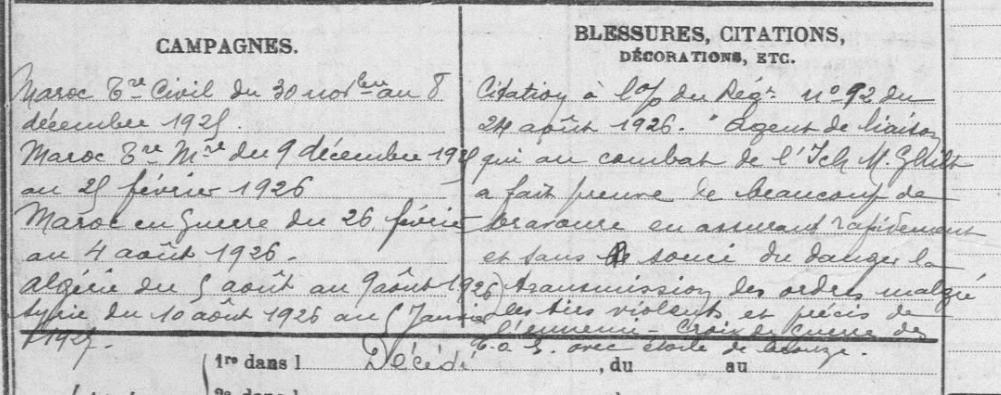 CAMPAGNES.
Maroc Tre Civil du 30 novbre au 8
décembre 1925.
Maroc Tre Mre du 9 décembre 1925
au 25 février 1926
Maroc en guerre du 26 février
au 4 août 1926.
Algérie du 5 août au 9 août 1926
Syrie du 10 août 1926 au 5 Janvier
1927.
BLESSURES, CITATIONS,
DÉCORATIONS, ETC.
Citation à l'o/ du Régt. n° 92 du
24 août 1926. "Agent de liaison
qui au combat de l'Ich M.
a fait preuve de beaucoup de
bravoure en assurant rapidement
et sans souci du danger la
transmission des ordres malgré
les tirs violents et précis de
l'ennemi - Croix de Guerre des
T.O.E. avec étoile de bronze.
1re dans l Décédé , du au
2e dans l